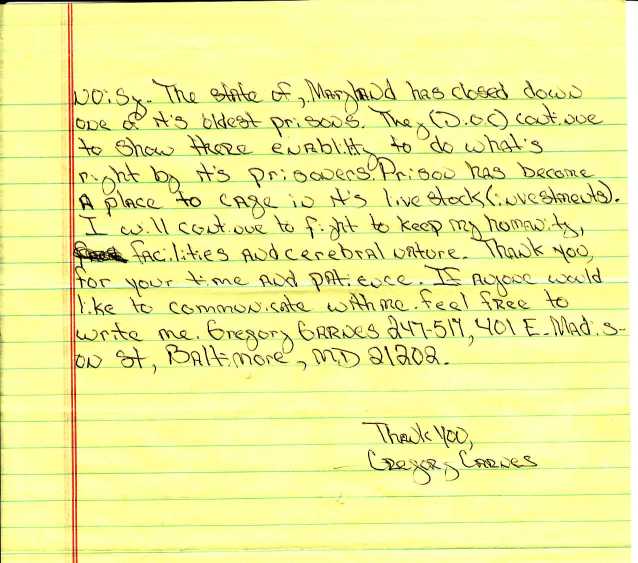 noisy. The state of, Maryland has closed down
one of it's oldest prisons. They (D.O.C) continue
to show there enablitty to do what's
right by it's prisoners. Prison has become
A place to cage in it's live stock (investments).
I will continue to fight to keep my homanity,
facilities and cerebral nature. Thank you,
for your time and patience. If Anyone would
like to communicate with me. feel free to
write me. Gregory Garnes 247-517, 401 E. Madis-
on st, Baltimore, MD 21202.
Thank you,
Gregory Garnes